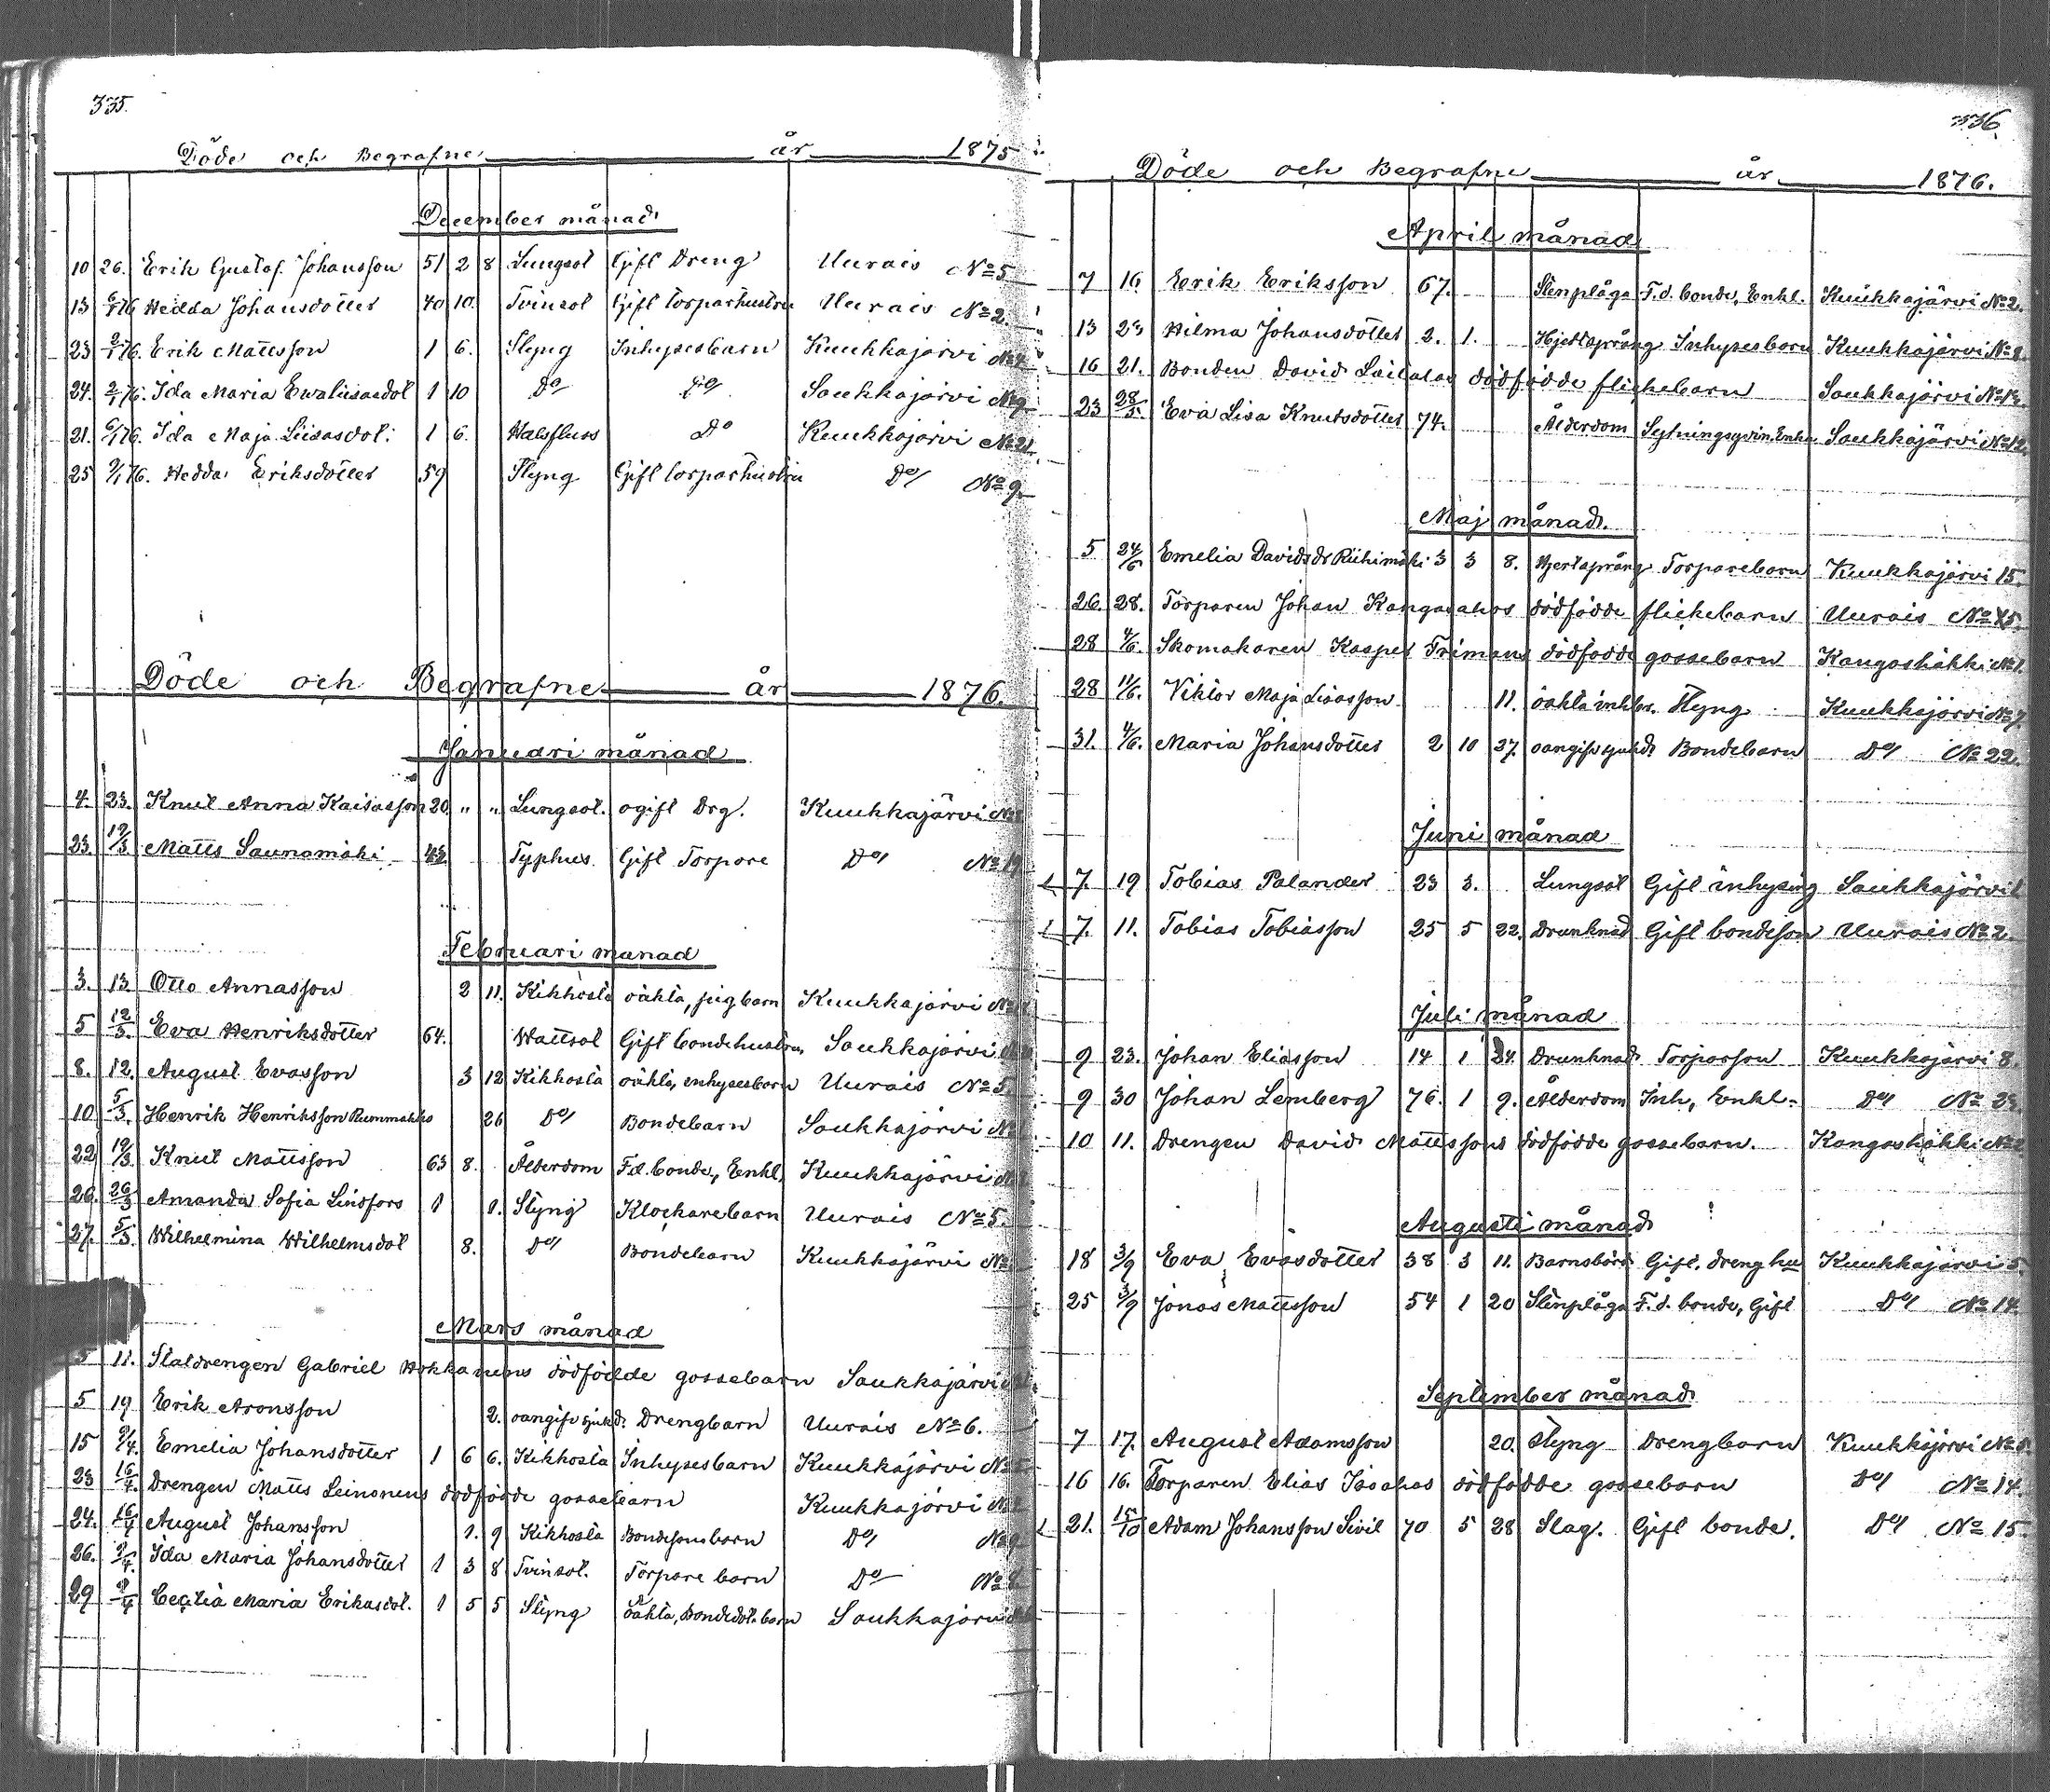 335.
Döde och Begrafne år 1875
December månad
10 26. Erik Gustaf Johansson 51 2 8 Lungsot Gift Dreng Uurais No 5
13 6/1 76 Hedda Johansdotter 40 10. Tvinsot Gift torparhustru Uurais No 2.
23 2/1 76. Erik Mattsson 1 6. Slyng Inhysesbarn Kuukkajärvi
24. 2/1 76. Ida Maria Ewaliisasdot 1 10 Do Do Saukkajärvi No 9
21. 6/1 76. Ida Maja Liisasdot: 1 6. Halsfluss Do Kuukkajärvi No 21.
25 9/1 76. Hedda Eriksdotter 59 Flyng Gift torparhustru Do No 9.
Döde och Begrafne år 1876.
Januari månad
4. 23. Knut Anna Kaisasson 20 " " Lungsot. ogift Drg. Kuukkajärvi
23. 19/3 Matts Saunamäki Typhus. Gift Torpare Do No 19
Februari månad
3. 13 Otto Annasson 2 11. Kikhosta oähta, pigbarn Kuukkajärvi
5 12/3. Eva Henriksdotter 64. Wattsot Gift bondehustru, Saukkajärvi
8. 12. August Evasson 3 12 Kikhosta oähta, inhysesbarn Uurais No 5.
10. 5/3. Henrik Henriksson Rummakko 26 Do Bondebarn Saukkajärvi
22 19/3. Knut Mattsson 63 8. Ålderdom F.d. bonde, Enkl. Kuukkajärvi
26. 26/3 Amanda Sofia Lindfors 1 Slyng Klockarebarn Uurais No 5.
27. 5/3. Wilhelmina Wilhelmsdot 8. Do Bondebarn Kuukkajärvi
Mars månad
5 11. Statdrengen Gabriel Hokkanens dödfödde gossebarn Saukkajärvi
5 19 Erik Aronsson 2. oangifv sjukd. Drengbarn Uurais No 6.
15 9/4. Emelia Johansdotter 1 6 6. Kikhosta Inhysesbarn Kuukkajärvi
23 16/4. Drengen Matts Leinonens dödfödde gossebarn Kuukkajärvi
24. 16/4 August Johansson 1. 9 Kikhosta Bondesonsbarn Do No 9
26. 9/4. Ida Maria Johansdotter 1 3 8 Tvinsot. Torpare barn Do
29 9/4 Cecilia Maria Erikasdot. 1 5 5 Slyng oähta, Bondedot. barn Saukkajärvi
336.
Döde och Begrafne år 1876.
April månad
7 16. Erik Eriksson 67. Stenplåga F.d. bonde, Enkl. Kuukkajärvi No 2.
13 23 Hilma Johansdotter 2. 1. Hjertsprång Inhysesbarn Kuukkajärvi
16 21. Bonden David dödfödde flickebarn Saukkajärvi No 12.
23 28/5. Eva Lisa Knutsdotter 74. Ålderdom Saukkajärvi No 12.
Maj månad.
5 24/6 Emelia Davidsdr Riihimäki 3 3 8. Hjertsprång Torparebarn Kuukkajärvi 15.
26. 28. Torparen Johan Kangasahos dödfödde flickebarn Uurais
28 4/6. Skomakaren Kasper Frimans dödfödde gossebarn Kangashäkki No 1.
28 11/6. Viktor Maja Liisasson 11. oähta inhbr. Flyng Kuukkajärvi No 7.
31. 4/6. Maria Johansdotter 2 10 27. oangifv sjukd. Bondebarn Do No 22.
Juni månad
7. 19 Tobias Palander 23 3. Lungsot Gift inhysing Saukkajärvi
7. 11. Tobias Tobiasson 25 5 22. Drunknad Gift bondeson Uurais No 2.
Juli månad
9 23. Johan Eliasson 14 1 24. Drunknad Torparson Kuukkajärvi 8.
9 30 Johan Lemberg 76. 1 9. Ålderdom Inh, Enkl. Do No 23.
10 11. Drengen David Mattssons dödfödde gossebarn. Kangashäkki No 2
Augusti månad
18 3/9 Eva Evasdotter 38 3 11. Barnsbörd Gift. dreng hu Kuukkajärvi 5.
25 3/9 Jonas Mattsson 54 1 20 Stenplåga F.d. bonde, Gift Do No 14.
September månad
7 17. August Adamsson 20. Slyng Drengbarn Kuukkajärvi
16 16. Torparen Elias Isoahos dödfödde gossebarn Do No 14.
21. 15/10 Adam Johansson Sivil 70 5 28 Slag. Gift bonde. Do No 15.